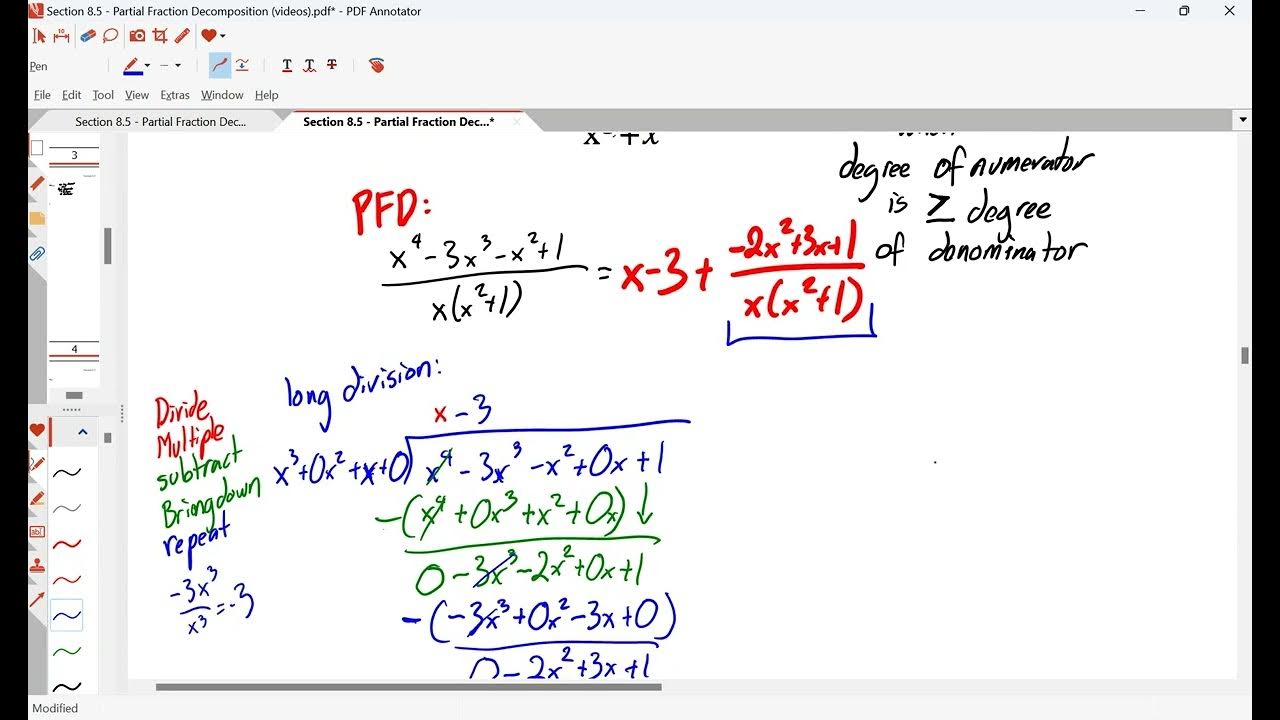 Section 8.5 - Partial Fraction Decomposition (videos).pdf* - PDF Annotator
Pen
File Edit Tool View Extras Window Help
Section 8.5 - Partial Fraction Dec... Section 8.5 - Partial Fraction Dec...*
3
4
degree of numerator
is ≥ degree
of donominator
PFD:
x⁴-3x³-x²+1 / x(x²+1) = x-3 + -2x²+3x+1 / x(x²+1)
long division:
Divide
Multiple
subtract
Bringdown
repeat
-3x³ / x³ = -3
x - 3
x³+0x²+x+0 x⁴ - 3x³ - x² + 0x + 1
-(x⁴ + 0x³ + x² + 0x) ↓
0 - 3x³ - 2x² + 0x + 1
-(-3x³ + 0x² - 3x + 0)
0 - 2x² + 3x + 1
Modified